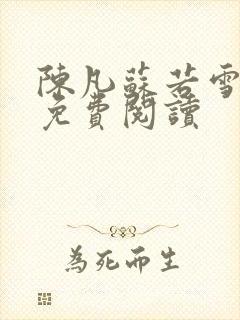 陳凡蘇若雪
免費閱讀
為死而生